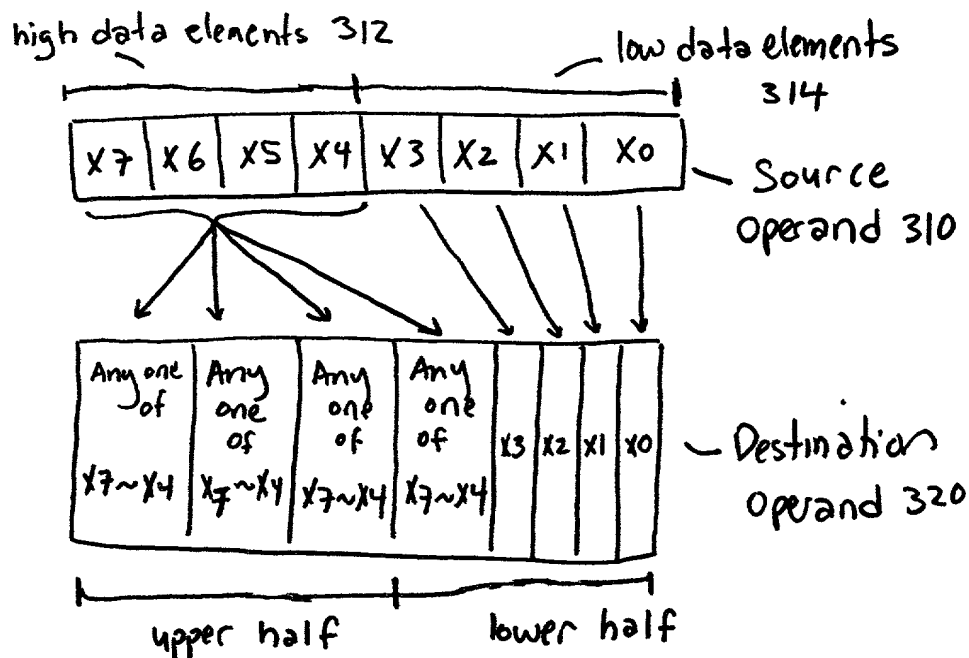 high data elements 312
low data elements
314
X7 X6 X5 X4 X3 X2 X1 X0
Source
Operand 310
Any one
of
X7~X4
Any
one
of
X7~X4
Any
one
of
X7~X4
Any
one
of
X7~X4
X3 X2 X1 X0
Destination
Operand 320
upper half
lower half